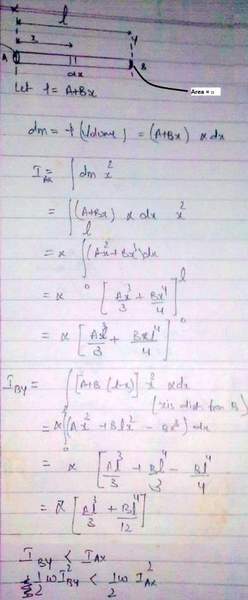 x
l
x
y
A
B
dx
Area = α
Let f = A+Bx
dm = f (Volume) = (A+Bx) α dx
I_AX = ∫ dm x²
= ∫ (A+Bx) α dx x²
= α ∫₀^l (Ax²+Bx³) dx
= α [Ax³/3 + Bx⁴/4]₀^l
= α [Al³/3 + Bl⁴/4]
I_BY = ∫ [A+B (l-x)] x² αdx
(x is dist from B)
= α ∫₀^l (Ax² + Blx² - Bx³) dx
= α [Al³/3 + Bl⁴/3 - Bl⁴/4]
= α [Al³/3 + Bl⁴/12]
I_BY < I_AX
½ω I²_BY < ½ω I²_AX